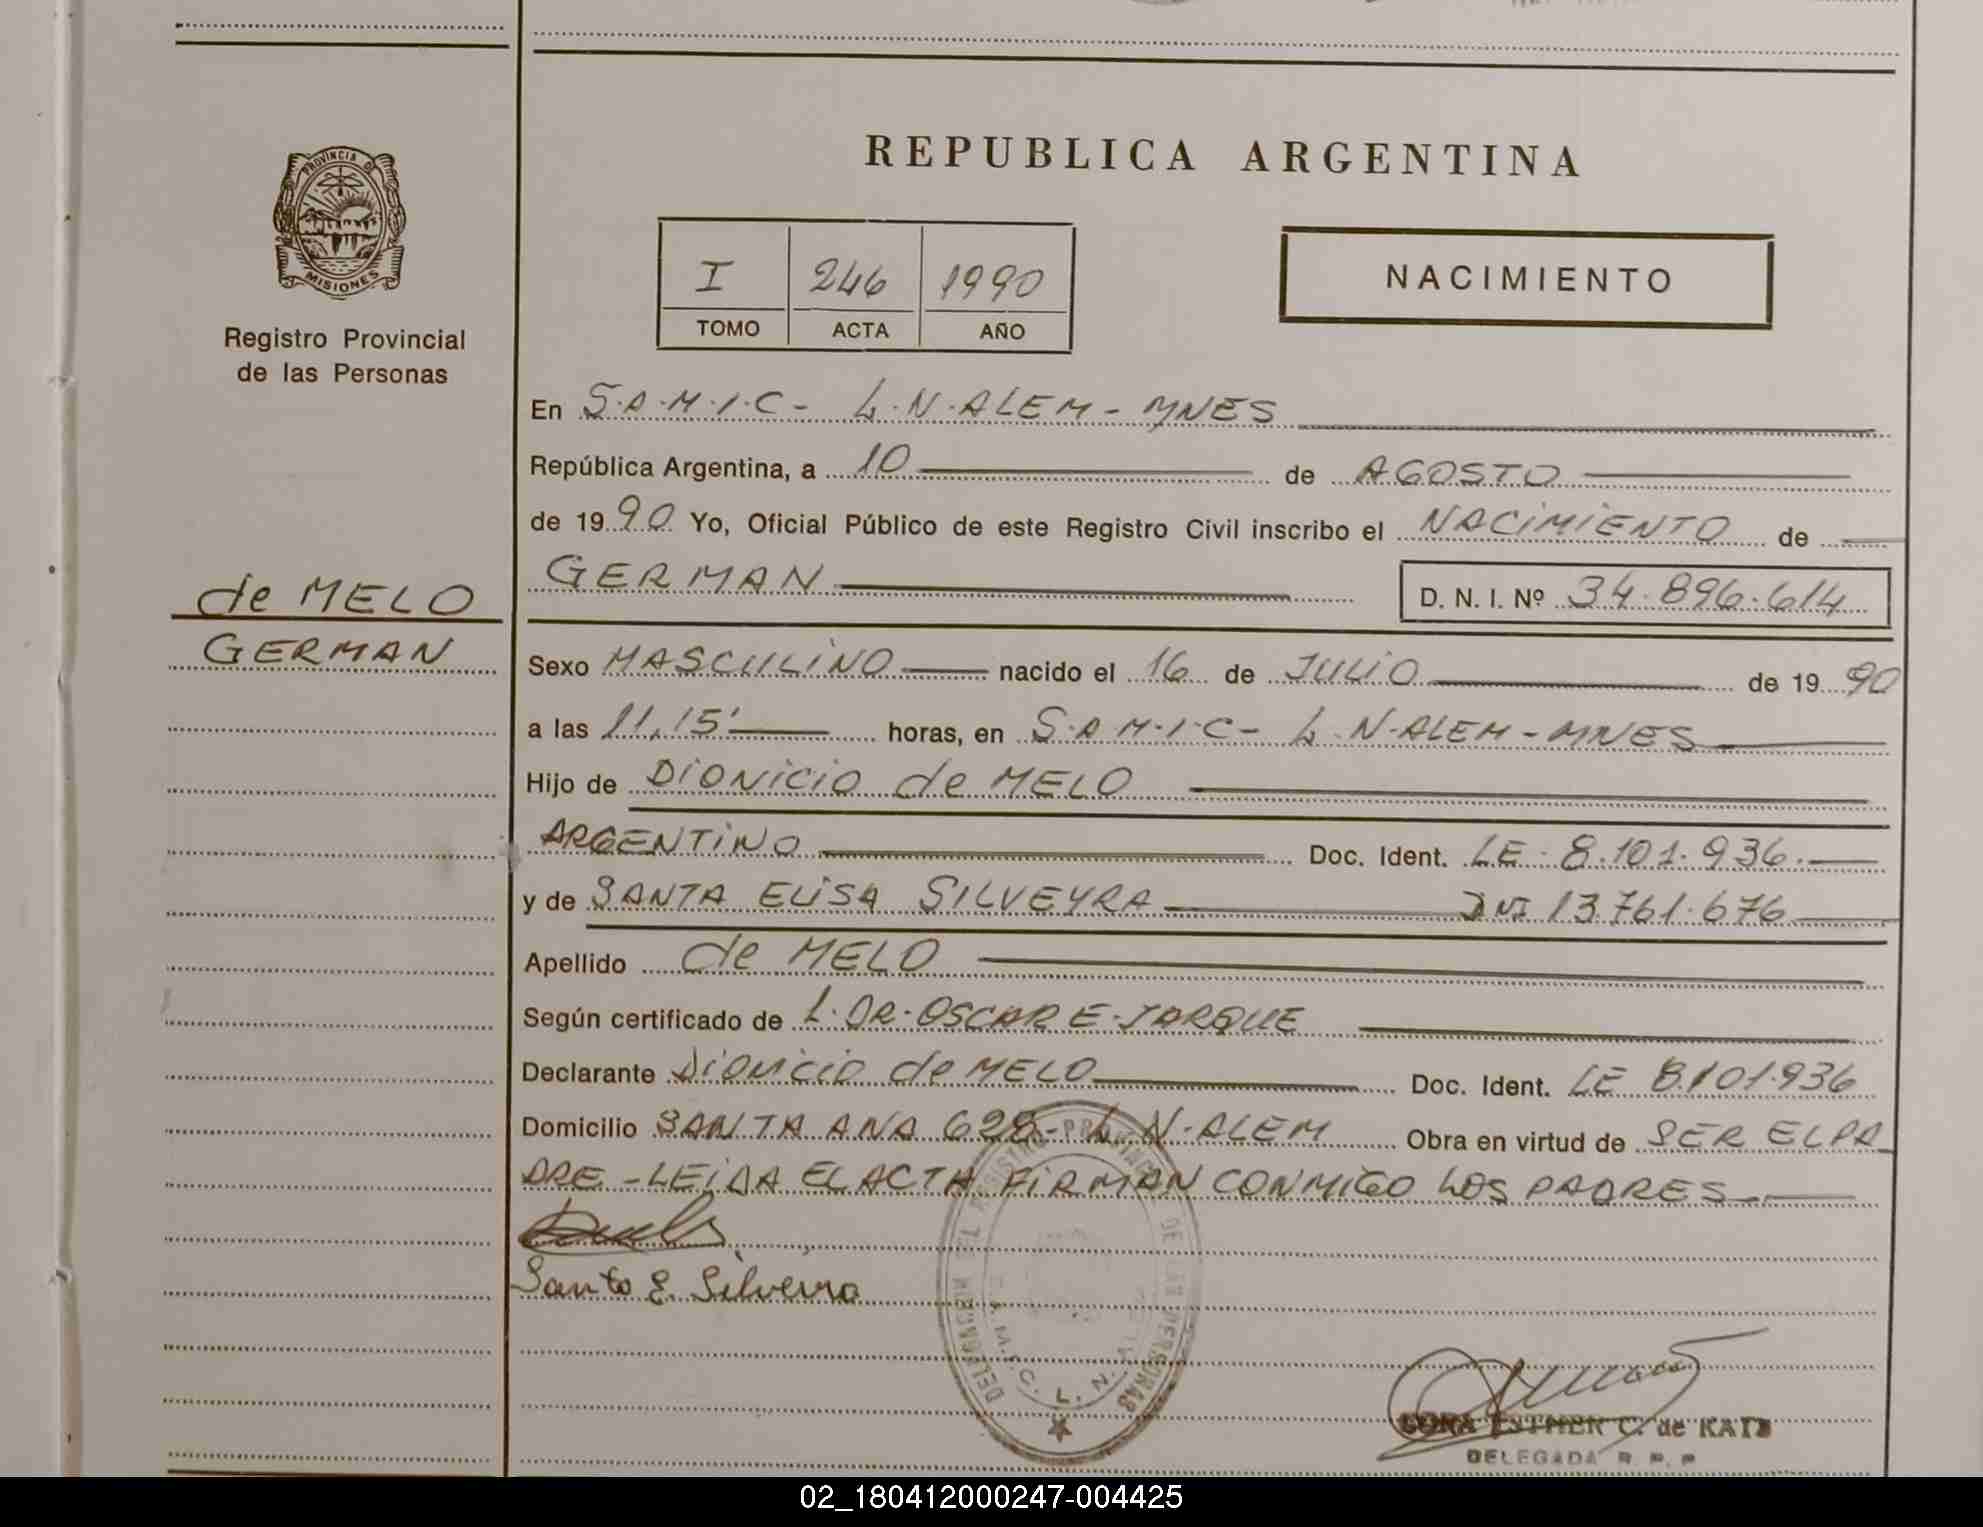 PROVINCIA D
MISIONES
Registro Provincial
de las Personas
de MELO
GERMAN
REPUBLICA ARGENTINA
I 246 1990
TOMO ACTA AÑO
NACIMIENTO
En S.A.M.I.C- L.N.ALEM-MNES
República Argentina, a 10 de AGOSTO
de 1990 Yo, Oficial Público de este Registro Civil inscribo el NACIMIENTO de
GERMAN D. N. I. Nº 34.896.614
Sexo MASCULINO nacido el 16 de JULIO de 1990
a las 11,15' horas, en S.A.M.I.C- L.N.ALEM-MNES
Hijo de DIONICIO de MELO
ARGENTINO Doc. Ident. LE 8.101.936.
y de SANTA ELISA SILVEYRA DNI 13.761.676
Apellido de MELO
Según certificado de L.DR.OSCAR E.JARQUE
Declarante DIONICIO de MELO Doc. Ident. LE 8.101.936
Domicilio SANTA ANA 628- L.N.ALEM Obra en virtud de SER EL PA
DRE-LEIDA EL ACTA FIRMAN CONMIGO LOS PADRES
Santa E. Silveira
DEL REGISTRO PROVINCIAL DE LAS PERSONAS
S.A.M.I.C. L.N.
ESTHER C. de KATZ
DELEGADA R. P. P.
02_180412000247-004425